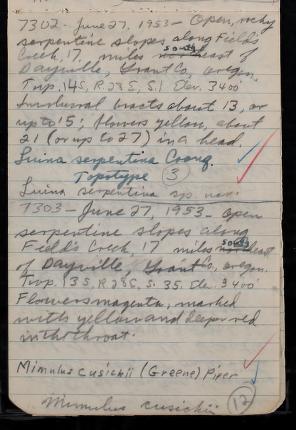 7302 - June 27, 1953 - Open, rocky
serpentine slopes along Field's
Creek, 17 miles southeast of
Dayville, Grant Co., Oregon.
Twp. 14S, R 28 E, S. 1 Elev. 3400
Involucral bracts about 13, or
up to 15; flowers yellow, about
21 (or up to 27) in a head.
Luina serpentina Cronq.
Topotype 3
Luina serpentina sp. nov.
7303 - June 27, 1953 - Open
serpentine slopes along
Field's Creek, 17 miles southeast
of Dayville, Grant Co., Oregon.
Twp. 13S, R 28 E, S. 35. Ele. 3400'
Flowers magenta, marked
with yellow and deeper red
in the throat.
Mimulus cusickii (Greene) Piper
Mimulus cusickii 12